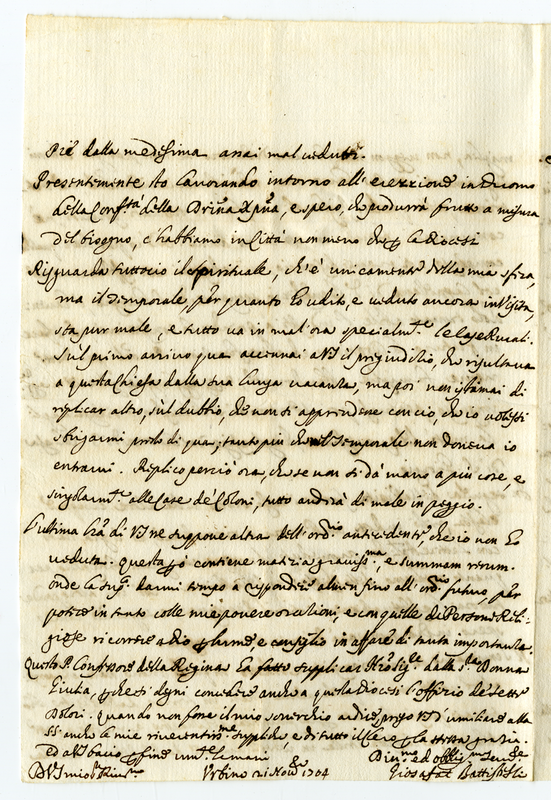 Più dalla medesima assai mal veduti.
Presentemente sto lavorando intorno all'erezzione in Duomo
della Conf.ta della Drīna Xpna, e spero, che produrrà frutto a misura
del bisogno, c'habbiamo in Città non meno che p la Diocesi
Risguarda tuttociò il spirituale, ch'è unicamente della mia sfera,
ma il temporale per quanto ho udito, e veduto ancora in Visita,
sta pur male, e tutto va in mal'ora specialm.te le Case Rurali.
Sul primo arrivo qua accennai a VS il pregiudizio, che risultava
a questa Chiesa dalla sua lunga vacanza, ma poi non stimai di
replicar altro, sul dubbio, che non si apprendesse con ciò, che io volessi
sbrigarmi presto di qua; tanto più che nel temporale non doveva io
entrarci. Replico perciò ora, che se non si dà mano a più cose, e
singolarm.te alle Case de' Coloni, tutto andrà di male in peggio.
L'ultima lra di VS ne suppone altra dell'ord.io antecedente che io non ho
veduta. Questa però contiene materia graviss.ma, e summam rerum.
onde la sup.o darmi tempo a rispondere almen fino all'ord.io futuro, per
potere in tanto colle mie povere orationi, e con quelle di Persone Reli-
giose ricorrere a Dio p lume, e consiglio in affare di tanta importanza.
Questo P. Confessore della Regina ha fatto supplicar N'ro Sig.re dalla S.ra Donna
Giulia, perche si degni concedere anche a questa Diocesi l'Offizio de' Setti
Dolori. Quando non fosse il mio soverchio ardire, prego VS d'umiliare alla
S.S. anche le mie riverentiss.me suppliche, e di tutto il Clero p la stessa grazia.
Ed a VS bacio p fine um.te le mani
Di VS mio Urbino 21 Nov.re 1704
Giosafat Battistelli